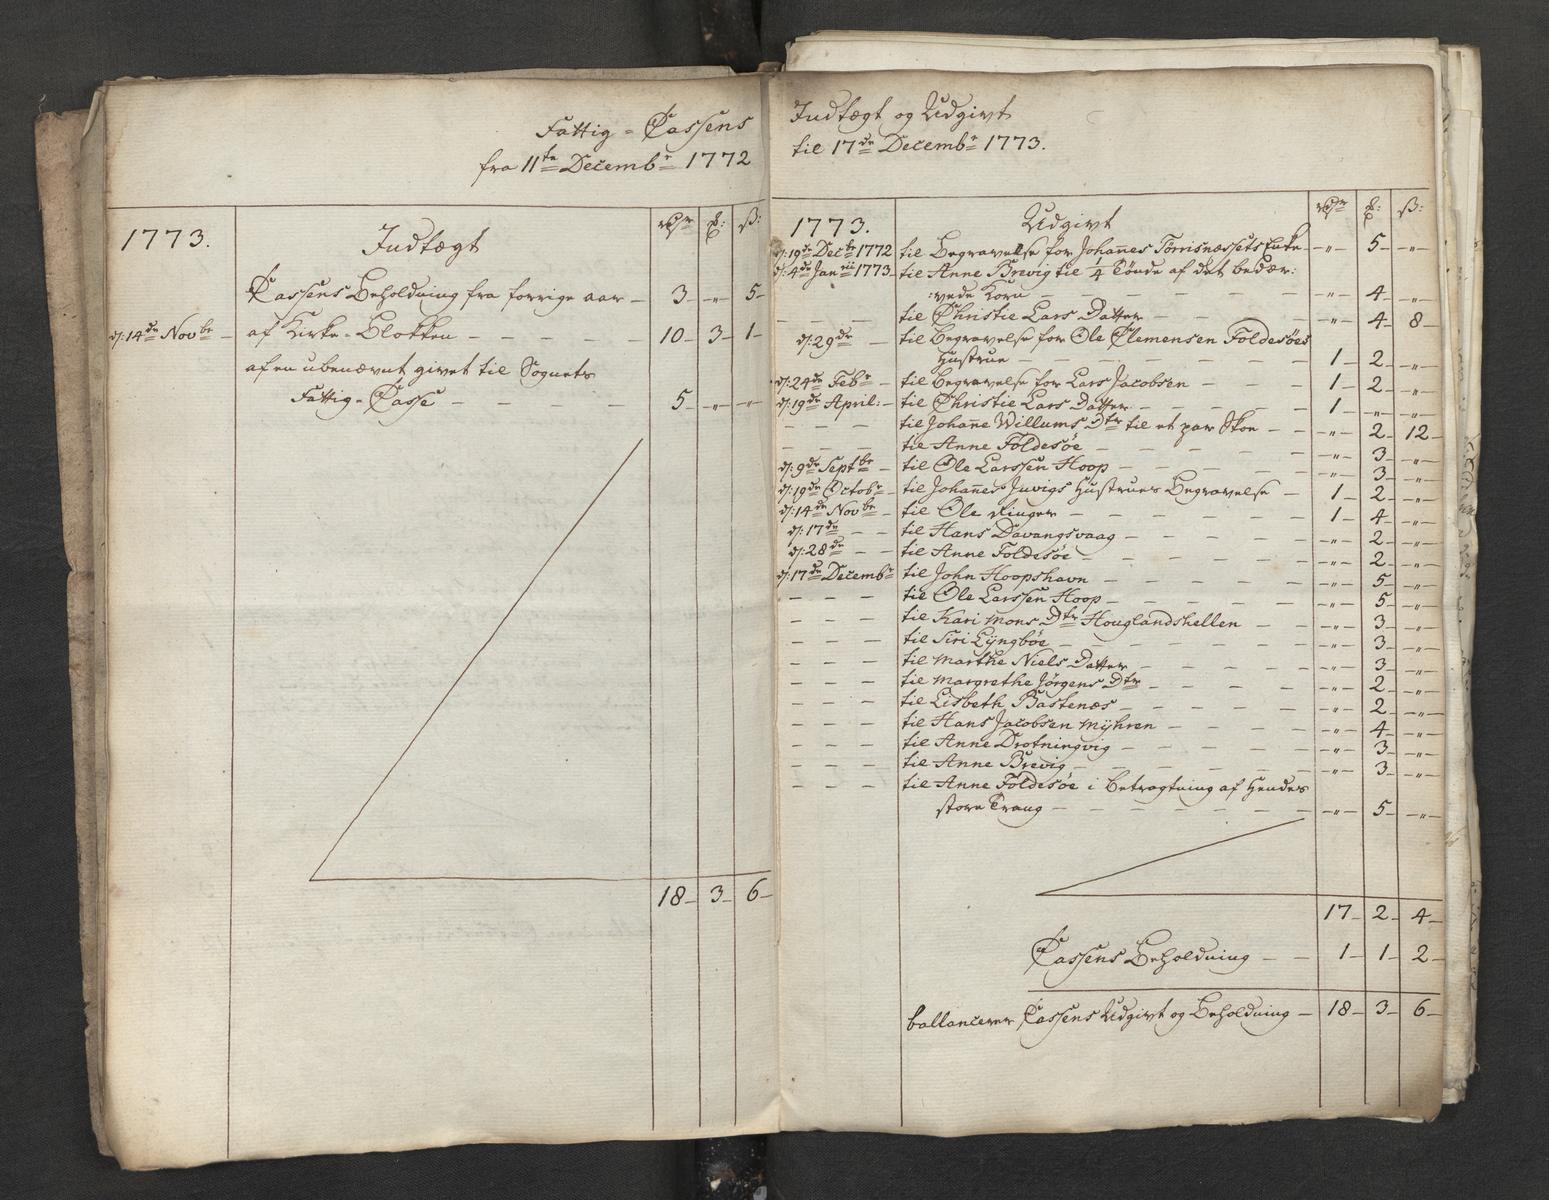 Fattig-Cassens
fra 11te Decembr 1772
1773. Indtægt rdr ß:
Cassens Beholdning fra forrige aar 3 – " – 5
d: 14de Novbr – af Kirke-Blokken – 10 – 3 – 1
af en ubenævnt givet til Sognets
Fattig-Casse – 5 – " – "
18 – 3 – 6
Indtægt og Udgivt
til 17de Decembr 1773.
1773. Udgivt rdr ß:
d: 19de Decbr 1772 til Begravelse for Johannes Torrisnæssets Enke – " – 5 – "
d: 4de Janrii 1773 – til Anne Brevig til 1/4 Tönde af det bedær:
:vede Korn – " – 4 – "
– – – til Christie Lars Datter – " – 4 – 8
d: 29de – til Begravelse for Ole Clemensen Foldesöes
Hustrue – 1 – 2 – "
d: 24de Febr – til Begravelse for Lars Jacobsen – 1 – 2 – "
d: 19de April: – til Christie Lars Datter – 1 – " – "
– – – til Johane Willums Dtr til et par Skoe – " – 2 – 12
– – – til Anne Foldesöe – " – 3 – "
d: 9de Septbr – til Ole Larssen Hoop – " – 3 – "
d: 19de Octobr – til Johanes Juvigs Hustrues Begravelse – 1 – 2 – "
d: 14de Novbr – til Ole Ringer – 1 – 4 – "
d: 17de – til Hans Davangsvaag – " – 2 – "
d: 28de – til Anne Foldesöe – " – 2 – "
d: 17de Decembr til John Hoopshavn – " – 5 – "
– – – til Ole Larssen Hoop – " – 5 – "
– – – til Kari Mons Dtr Houglandshellen – " – 3 – "
– – – til Siri Lÿngböe – " – 3 – "
– – – til Marthe Niels Datter – " – 3 – "
– – – til Margrethe Jörgens Dtr – " – 2 – "
– – – til Lisbeth Bastenæs – " – 2 – "
– – – til Hans Jacobsen Mÿhren – " – 4 – "
– – – til Anne Drotningvig – " – 3 – "
– – – til Anne Brevig – " – 3 – "
– – – til Anne Foldesöe i Betragtning af Hendes
store Trang – " – 5 – "
17 – 2 – 4
Cassens Beholdning – 1 – 1 – 2
ballancerer Cassens Udgivt og Beholdning – 18 – 3 – 6